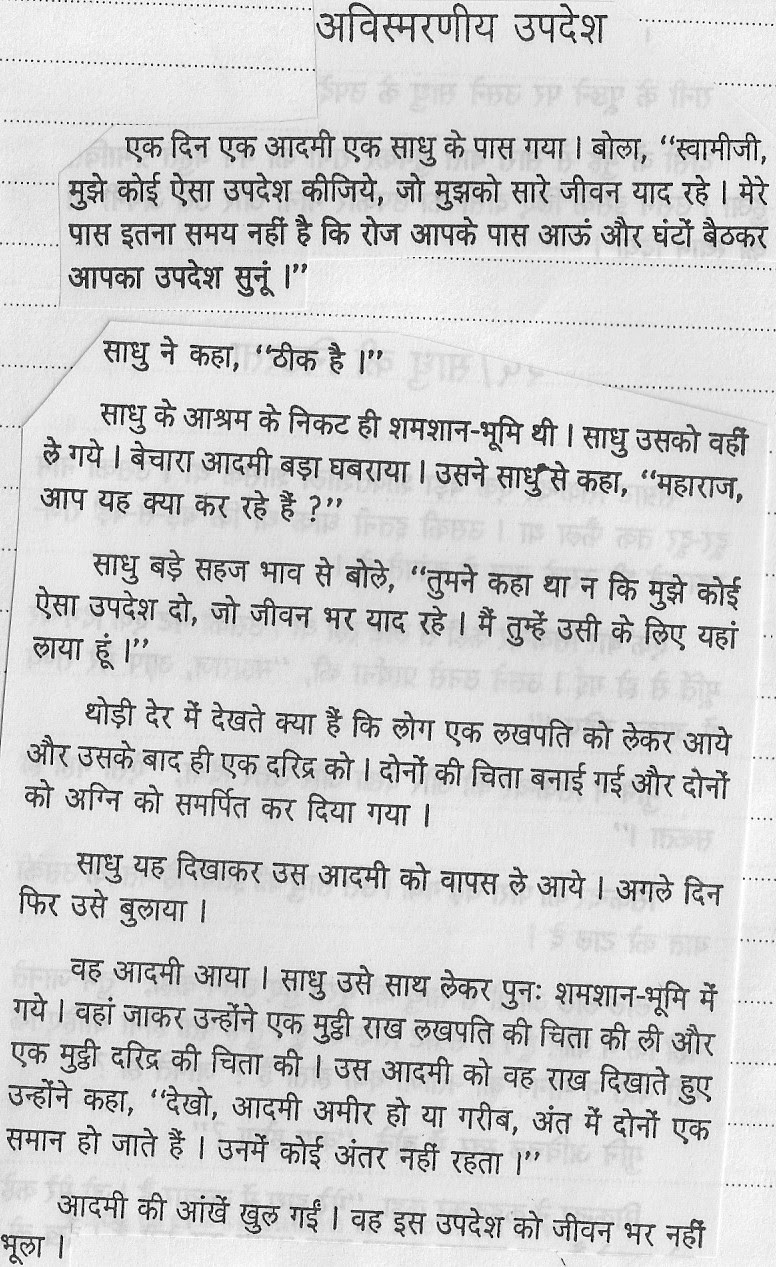 अविस्मरणीय उपदेश
एक दिन एक आदमी एक साधु के पास गया । बोला, “स्वामीजी,
मुझे कोई ऐसा उपदेश कीजिये, जो मुझको सारे जीवन याद रहे । मेरे
पास इतना समय नहीं है कि रोज आपके पास आऊं और घंटों बैठकर
आपका उपदेश सुनूं ।”
साधु ने कहा, “ठीक है ।”
साधु के आश्रम के निकट ही शमशान-भूमि थी । साधु उसको वहीं
ले गये । बेचारा आदमी बड़ा घबराया । उसने साधु से कहा, “महाराज,
आप यह क्या कर रहे हैं ?”
साधु बड़े सहज भाव से बोले, “तुमने कहा था न कि मुझे कोई
ऐसा उपदेश दो, जो जीवन भर याद रहे । मैं तुम्हें उसी के लिए यहां
लाया हूं ।”
थोड़ी देर में देखते क्या हैं कि लोग एक लखपति को लेकर आये
और उसके बाद ही एक दरिद्र को । दोनों की चिता बनाई गई और दोनों
को अग्नि को समर्पित कर दिया गया ।
साधु यह दिखाकर उस आदमी को वापस ले आये । अगले दिन
फिर उसे बुलाया ।
वह आदमी आया । साधु उसे साथ लेकर पुनः शमशान-भूमि में
गये । वहां जाकर उन्होंने एक मुट्ठी राख लखपति की चिता की ली और
एक मुट्ठी दरिद्र की चिता की । उस आदमी को वह राख दिखाते हुए
उन्होंने कहा, “देखो, आदमी अमीर हो या गरीब, अंत में दोनों एक
समान हो जाते हैं । उनमें कोई अंतर नहीं रहता ।”
आदमी की आंखें खुल गईं । वह इस उपदेश को जीवन भर नहीं
भूला ।